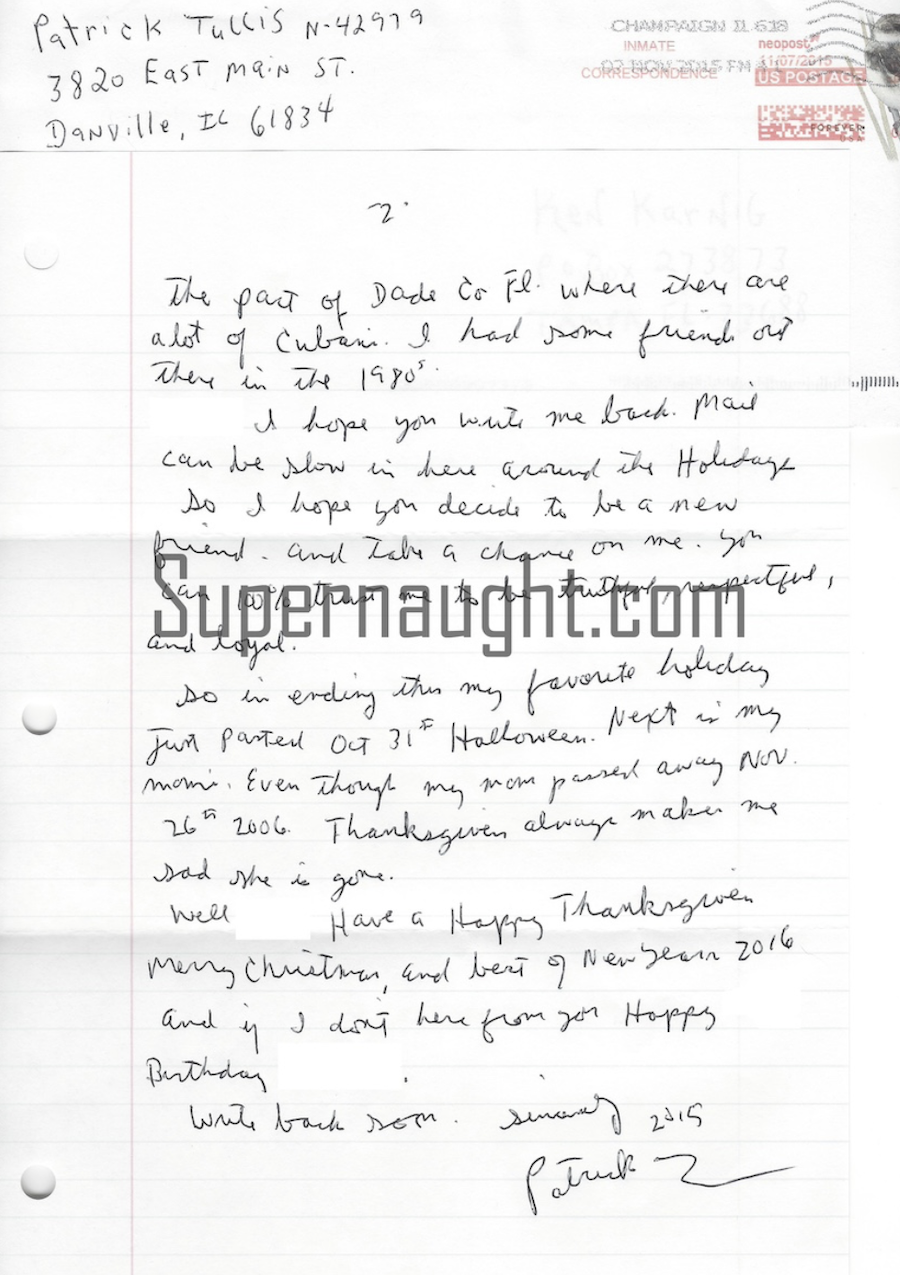 Patrick Tullis N-42979
3820 East Main ST.
Danville, IL 61834
CHAMPAIGN IL 618
INMATE
CORRESPONDENCE
07 NOV 2015 PM
neopost
11/07/2015
US POSTAGE
FOREVER
2.
Ken Karnig
The part of Dade Co Fl. where there are
alot of Cubans. I had some friends out
there in the 1980s.
I hope you write me back. Mail
can be slow in here around the Holidays
So I hope you decide to be a new
friend. and take a chance on me. you
can 100% trust me to be truthful, respectful,
and loyal.
Supernaught.com
So in ending this my favorite holiday
Just Passed Oct 31st Halloween. Next is my
moms. Even though my mom passed away Nov.
26th 2006. Thanksgiven always makes me
sad she is gone.
Well Have a Happy Thanksgiven
Merry Christmas, and best of New Years 2016
And if I don't here from you Happy
Birthday .
Write back soon. 2015
Patrick